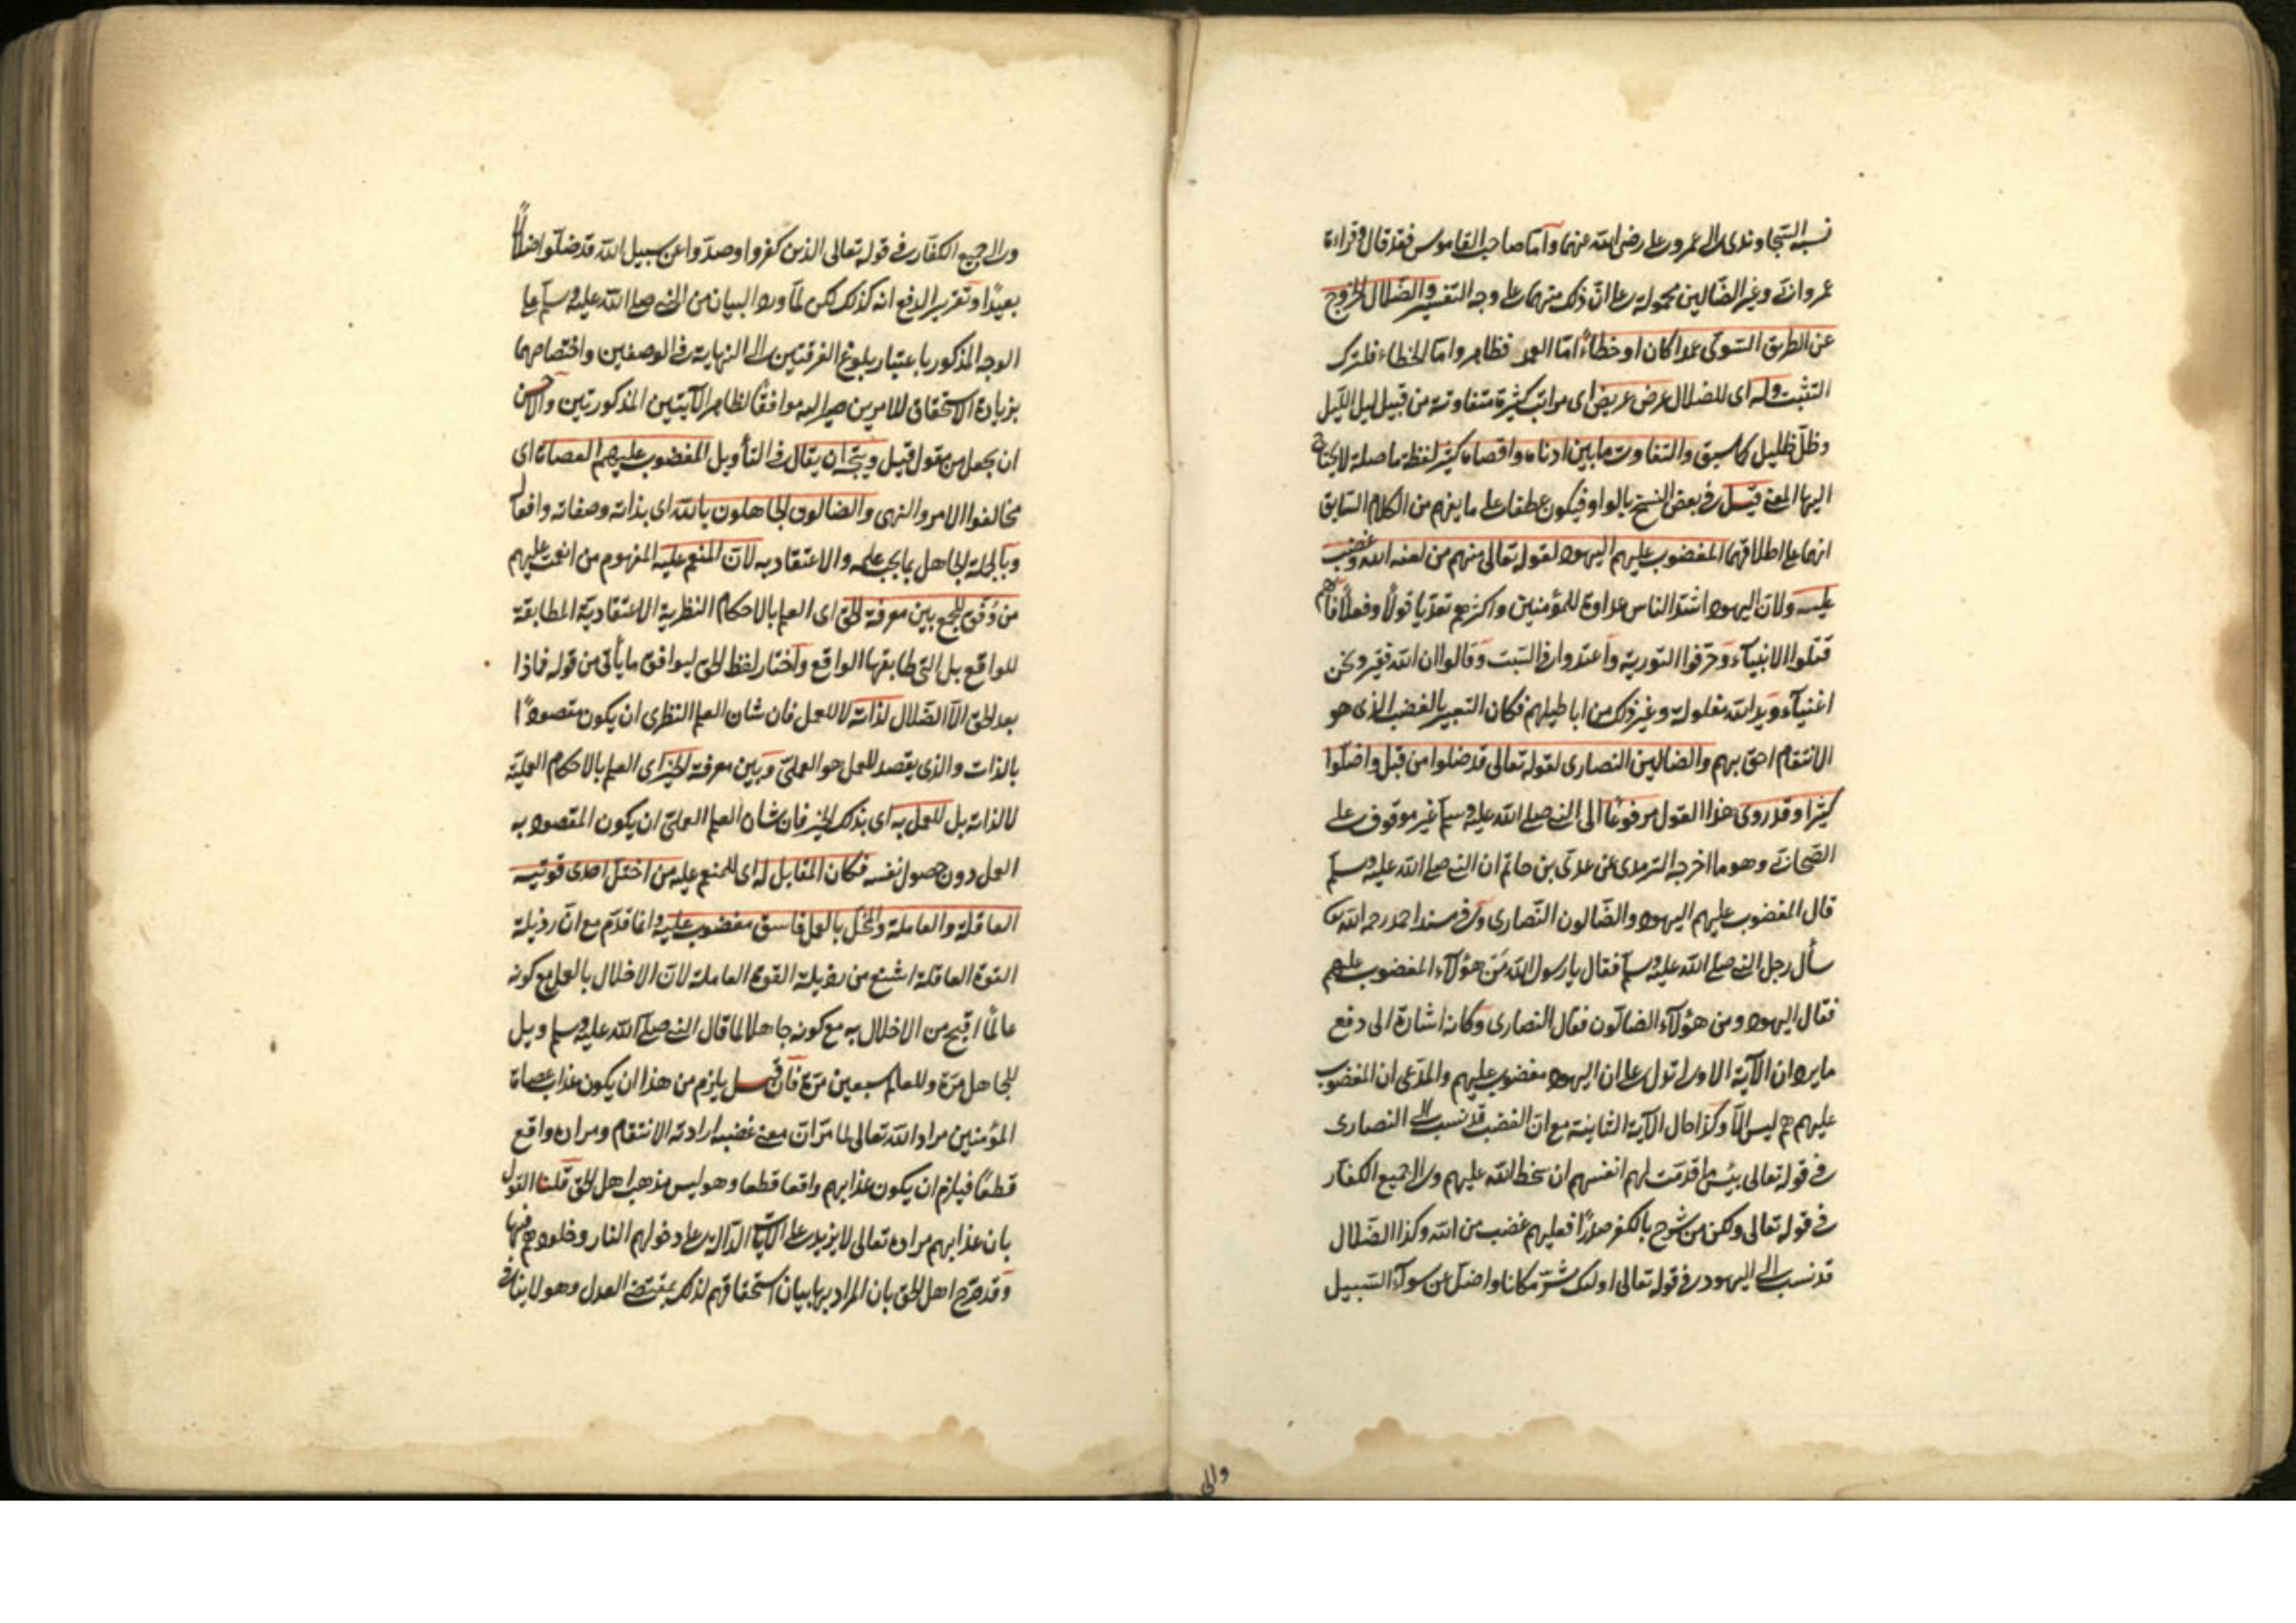 نسبه السجاوندى الى عمر وعلى رضى الله عنهما وأما صاحب القاموس فقد قال وقراءة
عمر وانى وغير الضالين محمولة على ان ذلك منهما على وجه التفسير والضلال الخروج
عن الطريق السوى عمدا كان او خطاء امّا العمد فظاهر وامّا الخطاء فلترك
التثبت وله اى للضلال عرض عريض اى مراتب كثيرة متفاوتة من قبيل ليل الليل
وظل ظليل كما سبق والتفاوت ما بين ادناه واقصاه كثير لفظة ما صلة لا يحتاج
اليها المعنى قيل وفى بعض النسخ بالواو فيكون عطفا على ما يفهم من الكلام السابق
انهما على اطلاقهما المغضوب عليهم اليهود لقوله تعالى منهم من لعنه الله وغضب
عليه ولان اليهود اشد الناس عداوة للمؤمنين واكثرهم تعديا قولا وفعلا فانهم
قتلوا الانبياء وحرّفوا التورية واعتدوا فى السبت وقالوا ان الله فقير ونحن
اغنياء ويد الله مغلولة وغير ذلك من اباطيلهم فكان التعبير بالغضب الذى هو
الانتقام احق بهم والضالين النصارى لقوله تعالى قد ضلوا من قبل واضلّوا
كثيرا وقد روى هذا القول مرفوعًا الى النبى صلى الله عليه وسلم غير موقوف على
الصحابى وهو ما اخرجه الترمدى عن عدىّ بن حاتم ان النبى صلى الله عليه وسلم
قال المغضوب عليهم اليهود والضّالون النّصارى وفى مسند احمد رحمه الله
سأل رجل النبى صلى الله عليه وسلم فقال يا رسول الله مَنْ هؤلاء المغضوب عليهم
فقال اليهود ومن هؤلاء الضالّون فقال النصارى وكانه اشارة الى دفع
ما يرد ان الآية الاولى تدل على ان اليهود مغضوب عليهم والمدّعى ان المغضوب
عليهم هم ليس الّا وكذا حال الآية الثانية مع ان الغضب قد نسب الى النصارى
فى قوله تعالى بئس ما قدمت لهم انفسهم ان سخط الله عليهم والى جميع الكفّار
فى قوله تعالى ولكن من شرح بالكفر صدرًا فعليهم غضب من الله وكذا الضّلال
قد نسب الى اليهود فى قوله تعالى اولئك شرّ مكانا واضلّ عن سوآء السّبيل
والى
والى جميع الكفّار فى قوله تعالى الذين كفروا وصدّوا عن سبيل الله قد ضلّوا ضلالًا
بعيدًا وتقرير الدفع انه كذلك لكن لمّا ورد البيان من النبى صلى الله عليه وسلم على
الوجه المذكور باعتبار بلوغ الفرقتين الى النهاية فى الوصفين واختصاصهما
بزيادة الاستحقاق للامرين صير اليه موافقًا لظاهر الآيتين المذكورتين والاحسن
ان يجعل من مقول قيل ويتّجه ان يقال فى التأويل المغضوب عليهم العصاة اى
مخالفوا الامر والنهى والضالون الجاهلون بالله اى بذاته وصفاته وافعاله
وبالجملة الجاهل بما يجب علمه والاعتقاد به لان المنعم عليه المفهوم من انعمت عليهم
من وُفّق للجمع بين معرفة الحق اى العلم بالاحكام النظرية الاعتقاديّة المطابقة
للواقع بل التى طابقها الواقع واختار لفظ الحق ليوافق ما يأتى من قوله فماذا
بعد الحق الّا الضّلال لذاته لا للعمل فان شان العلم النظرى ان يكون مقصودًا
بالذات والذى يقصد للعمل هو العملىّ وبين معرفة الخير اى العلم بالاحكام العمليّة
لا لذاته بل للعمل به اى بذلك الخير فان شان العلم العملىّ ان يكون المقصود به
العمل دون حصول نفسه فكان المقابل له اى للمنعم عليه من اختلّ احدى قوّتيه
العاقلة والعاملة والمخل بالعمل فاسق مغضوب عليه وانما قدّم مع ان رذيلة
القوة العاقلة اشنع من رذيلة القوة العاملة لان الاخلال بالعمل مع كونه
عالمًا اقبح من الاخلال به مع كونه جاهلا لما قال النبى صلى الله عليه وسلم ويل
للجاهل مرّة وللعالم سبعين مرّة فان قيل يلزم من هذا ان يكون عذاب عصاة
المؤمنين مراد الله تعالى لما مرّ ان معنى غضبه ارادته الانتقام ومراده واقع
قطعًا فيلزم ان يكون عذابهم واقعا قطعا وهو ليس مذهب اهل الحق قلنا القول
بان عذابهم مراده تعالى لا يزيد على الآيات الدّالة على دخولهم النار وخلودهم فيها
وقد صرّح اهل الحق بان المراد بها بيان استحقاقهم لذلك بمقتضى العدل وهو لا ينافى